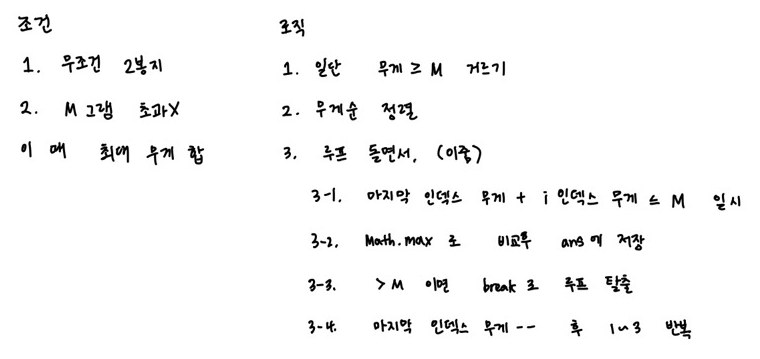 조건
1. 무조건 2봉지
2. M그램 초과X
이 때 최대 무게 합
로직
1. 일단 무게 ≥ M 거르기
2. 무게순 정렬
3. 루프 돌면서, (이중)
3-1. 마지막 인덱스 무게 + i 인덱스 무게 ≤ M 일시
3-2. Math.max 로 비교후 ans에 저장
3-3. > M 이면 break로 루프 탈출
3-4. 마지막 인덱스 무게-- 후 1~3 반복